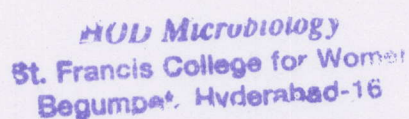 HOD Microbiology
St. Francis College for Women
Begumpet, Hyderabad-16